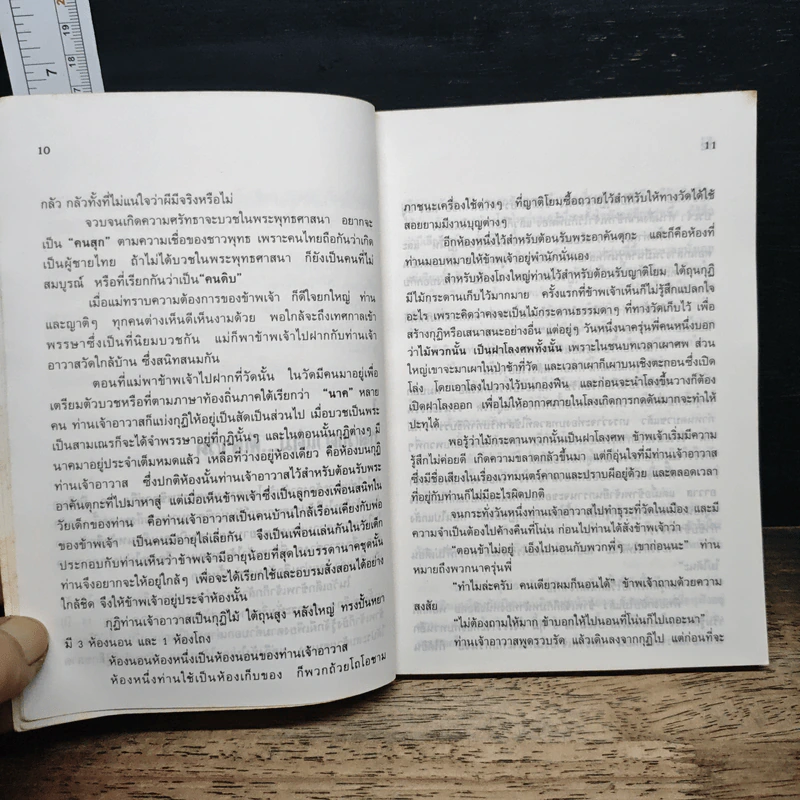 10
กลัว กลัวทั้งที่ไม่แน่ใจว่าผีมีจริงหรือไม่
จวบจนเกิดความศรัทธาจะบวชในพระพุทธศาสนา อยากจะ
เป็น "คนสุก" ตามความเชื่อของชาวพุทธ เพราะคนไทยถือกันว่าเกิด
เป็นผู้ชายไทย ถ้าไม่ได้บวชในพระพุทธศาสนา ก็ยังเป็นคนที่ไม่
สมบูรณ์ หรือที่เรียกกันว่าเป็น"คนดิบ"
เมื่อแม่ทราบความต้องการของข้าพเจ้า ก็ดีใจยกใหญ่ ท่าน
และญาติๆ ทุกคนต่างเห็นดีเห็นงามด้วย พอใกล้จะถึงเทศกาลเข้า
พรรษาซึ่งเป็นที่นิยมบวชกัน แม่ก็พาข้าพเจ้าไปฝากกับท่านเจ้า
อาวาสวัดใกล้บ้าน ซึ่งสนิทสนมกัน
ตอนที่แม่พาข้าพเจ้าไปฝากที่วัดนั้น ในวัดมีคนมาอยู่เพื่อ
เตรียมตัวบวชหรือที่ตามภาษาท้องถิ่นภาคใต้เรียกว่า "นาค" หลาย
คน ท่านเจ้าอาวาสก็แบ่งกุฏิให้อยู่เป็นสัดเป็นส่วนไป เมื่อบวชเป็นพระ
เป็นสามเณรก็จะได้จำพรรษาอยู่ที่กุฏินั้นๆ และในตอนนั้นกุฏิต่างๆ มี
นาคมาอยู่ประจำเต็มหมดแล้ว เหลือที่ว่างอยู่ห้องเดียว คือห้องบนกุฏิ
ท่านเจ้าอาวาส ซึ่งปกติห้องนั้นท่านเจ้าอาวาสไว้สำหรับต้อนรับพระ
อาคันตุกะที่ไปมาหาสู่ แต่เมื่อเห็นข้าพเจ้าซึ่งเป็นลูกของเพื่อนสนิทใน
วัยเด็กของท่าน คือท่านเจ้าอาวาสเป็นคนบ้านใกล้เรือนเคียงกับพ่อ
ของข้าพเจ้า เป็นคนมีอายุไล่เลี่ยกัน จึงเป็นเพื่อนเล่นกันในวัยเด็ก
ประกอบกับท่านเห็นว่าข้าพเจ้ามีอายุน้อยที่สุดในบรรดานาคชุดนั้น
ท่านจึงอยากจะให้อยู่ใกล้ๆ เพื่อจะได้เรียกใช้และอบรมสั่งสอนได้อย่าง
ใกล้ชิด จึงให้ข้าพเจ้าอยู่ประจำห้องนั้น
กุฏิท่านเจ้าอาวาสเป็นกุฏิไม้ ใต้ถุนสูง หลังใหญ่ ทรงปั้นหยา
มี 3 ห้องนอน และ 1 ห้องโถง
ห้องนอนห้องหนึ่งเป็นห้องนอนของท่านเจ้าอาวาส
ห้องหนึ่งท่านใช้เป็นห้องเก็บของ ก็พวกถ้วยโถโอชาม
11
ภาชนะเครื่องใช้ต่างๆ ที่ญาติโยมซื้อถวายไว้สำหรับให้ทางวัดได้ใช้
สอยยามมีงานบุญต่างๆ
อีกห้องหนึ่งไว้สำหรับต้อนรับพระอาคันตุกะ และก็คือห้องที่
ท่านมอบหมายให้ข้าพเจ้าอยู่พำนักนั่นเอง
สำหรับห้องโถงใหญ่ท่านไว้สำหรับต้อนรับญาติโยม ใต้ถุนกุฏิ
มีไม้กระดานเก็บไว้มากมาย ครั้งแรกที่ข้าพเจ้าเห็นก็ไม่รู้สึกแปลกใจ
อะไร เพราะคิดว่าคงจะเป็นไม้กระดานธรรมดาๆ ที่ทางวัดเก็บไว้ เพื่อ
สร้างกุฏิหรือเสนาสนะอย่างอื่น แต่อยู่ๆ วันหนึ่งนาครุ่นพี่คนหนึ่งบอก
ว่าไม้พวกนั้น เป็นฝาโลงศพทั้งนั้น เพราะในชนบทเวลาเผาศพ ส่วน
ใหญ่เขาจะมาเผาในป่าช้าที่วัด และเวลาเผาก็เผาบนเชิงตะกอนซึ่งเปิด
โล่ง โดยเอาโลงไปวางไว้บนกองฟืน และก่อนจะนำโลงขึ้นวางก็ต้อง
เปิดฝาโลงออก เพื่อไม่ให้อากาศภายในโลงเกิดการกดดันมากจะทำให้
ปะทุได้
พอรู้ว่าไม้กระดานพวกนั้นเป็นฝาโลงศพ ข้าพเจ้าเริ่มมีความ
รู้สึกไม่ค่อยดี เกิดความขลาดกลัวขึ้นมา แต่ก็อุ่นใจที่มีท่านเจ้าอาวาส
ซึ่งมีชื่อเสียงในเรื่องเวทมนตร์คาถาและปราบผีอยู่ด้วย และตลอดเวลา
ที่อยู่กับท่านก็ไม่มีอะไรผิดปกติ
จนกระทั่งวันหนึ่งท่านเจ้าอาวาสไปทำธุระที่วัดในเมือง และมี
ความจำเป็นต้องไปค้างคืนที่โน่น ก่อนไปท่านได้สั่งข้าพเจ้าว่า
"ตอนข้าไม่อยู่ เอ็งไปนอนกับพวกพี่ๆ เขาก่อนนะ" ท่าน
หมายถึงพวกนาครุ่นพี่
"ทำไมล่ะครับ คนเดียวผมก็นอนได้" ข้าพเจ้าถามด้วยความ
สงสัย
"ไม่ต้องถามให้มาก ข้าบอกให้ไปนอนที่โน่นก็ไปเถอะนา"
ท่านเจ้าอาวาสพูดรวบรัด แล้วเดินลงจากกุฏิไป แต่ก่อนที่จะ
7
18
19